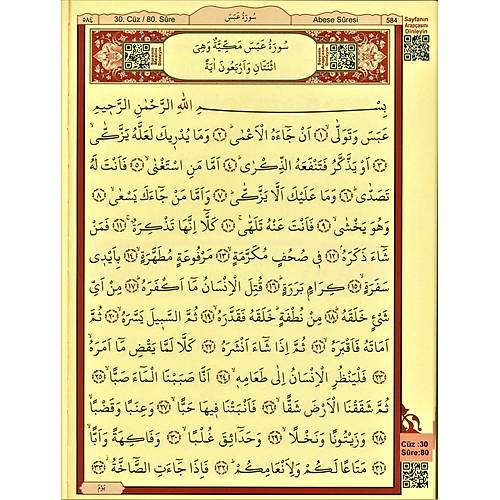 ٥٨٤
30. Cüz / 80. Sûre
سُورَةُ عَبَسَ
Abese Sûresi
584
Sayfanın
Arapçasını
Dinleyin
سُورَةُ عَبَسَ مَكِّيَّةٌ وَهِىَ
اثْنَتَانِ وَاَرْبَعُونَ اٰيَةً
بِسْمِ اللّٰهِ الرَّحْمٰنِ الرَّحِيمِ
عَبَسَ وَتَوَلّٰىۙ ﴿١﴾ اَنْ جَٓاءَهُ الْاَعْمٰىۜ ﴿٢﴾ وَمَا يُدْرِيكَ لَعَلَّهُ يَزَّكّٰىۙ
﴿٣﴾ اَوْ يَذَّكَّرُ فَتَنْفَعَهُ الذِّكْرٰىۜ ﴿٤﴾ اَمَّا مَنِ اسْتَغْنٰىۙ ﴿٥﴾ فَاَنْتَ لَهُ
تَصَدّٰىۜ ﴿٦﴾ وَمَا عَلَيْكَ اَلَّا يَزَّكّٰىۜ ﴿٧﴾ وَاَمَّا مَنْ جَٓاءَكَ يَسْعٰىۙ ﴿٨﴾
وَهُوَ يَخْشٰىۙ ﴿٩﴾ فَاَنْتَ عَنْهُ تَلَهّٰىۚ ﴿١٠﴾ كَلَّٓا اِنَّهَا تَذْكِرَةٌۚ ﴿١١﴾ فَمَنْ
شَٓاءَ ذَكَرَهُۢ ﴿١٢﴾ فِى صُحُفٍ مُكَرَّمَةٍۙ ﴿١٣﴾ مَرْفُوعَةٍ مُطَهَّرَةٍۙ ﴿١٤﴾ بِاَيْدِى
سَفَرَةٍۙ ﴿١٥﴾ كِرَامٍ بَرَرَةٍۜ ﴿١٦﴾ قُتِلَ الْاِنْسَانُ مَٓا اَكْفَرَهُۜ ﴿١٧﴾ مِنْ اَىِّ
شَىْءٍ خَلَقَهُۜ ﴿١٨﴾ مِنْ نُطْفَةٍۜ خَلَقَهُ فَقَدَّرَهُۙ ﴿١٩﴾ ثُمَّ السَّبِيلَ يَسَّرَهُۙ ﴿٢٠﴾ ثُمَّ
اَمَاتَهُ فَاَقْبَرَهُۙ ﴿٢١﴾ ثُمَّ اِذَا شَٓاءَ اَنْشَرَهُۜ ﴿٢٢﴾ كَلَّا لَمَّا يَقْضِ مَٓا اَمَرَهُۜ
﴿٢٣﴾ فَلْيَنْظُرِ الْاِنْسَانُ اِلٰى طَعَامِهِۙ ﴿٢٤﴾ اَنَّا صَبَبْنَا الْمَٓاءَ صَبًّاۙ ﴿٢٥﴾
ثُمَّ شَقَقْنَا الْاَرْضَ شَقًّاۙ ﴿٢٦﴾ فَاَنْبَتْنَا فِيهَا حَبًّاۙ ﴿٢٧﴾ وَعِنَبًا وَقَضْبًاۙ
﴿٢٨﴾ وَزَيْتُونًا وَنَخْلًاۙ ﴿٢٩﴾ وَحَدَٓائِقَ غُلْبًاۙ ﴿٣٠﴾ وَفَاكِهَةً وَاَبًّاۙ
﴿٣١﴾ مَتَاعًا لَكُمْ وَلِاَنْعَامِكُمْۜ ﴿٣٢﴾ فَاِذَا جَٓاءَتِ الصَّٓاخَّةُۘ ﴿٣٣﴾
يَوْمَ
Cüz :30
Sûre:80